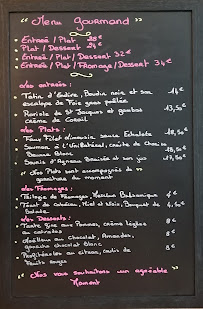 " Menu gourmand "
• Entrée / Plat 28€
• Plat / Dessert 24€
• Entrée / Dessert 32€
• Entrée / Plat / Fromage / Dessert 34€
Les entrées :
• Tatin d'Endive, Boudin noir et son 14€
escalope de Foie gras poêlée
• de St Jacques et gambas 13,50€
crème de Corail
Les Plats :
• Faux Filet sauce Echalote 18,50€
• Saumon à l'Unilatéral, 18,50€
Beurre Blanc
• Souris d'Agneau Braisée et son jus 17,50€
" Nos Plats sont accompagnés de
garnitures du moment
Les Fromages :
• Trilogie de Fromages, Balsamique 4€
• Miel et Noix, Bouquet de
Salade
Les Desserts :
• Tarte fine aux Pommes, crème légère 8€
au calvados
• Moëlleux au Chocolat, Amandes, 8€
ganache chocolat Blanc
• Profiteroles au citron, coulis de 8€
Fruits rouges
" Nos vous souhaitons un agréable
Moment